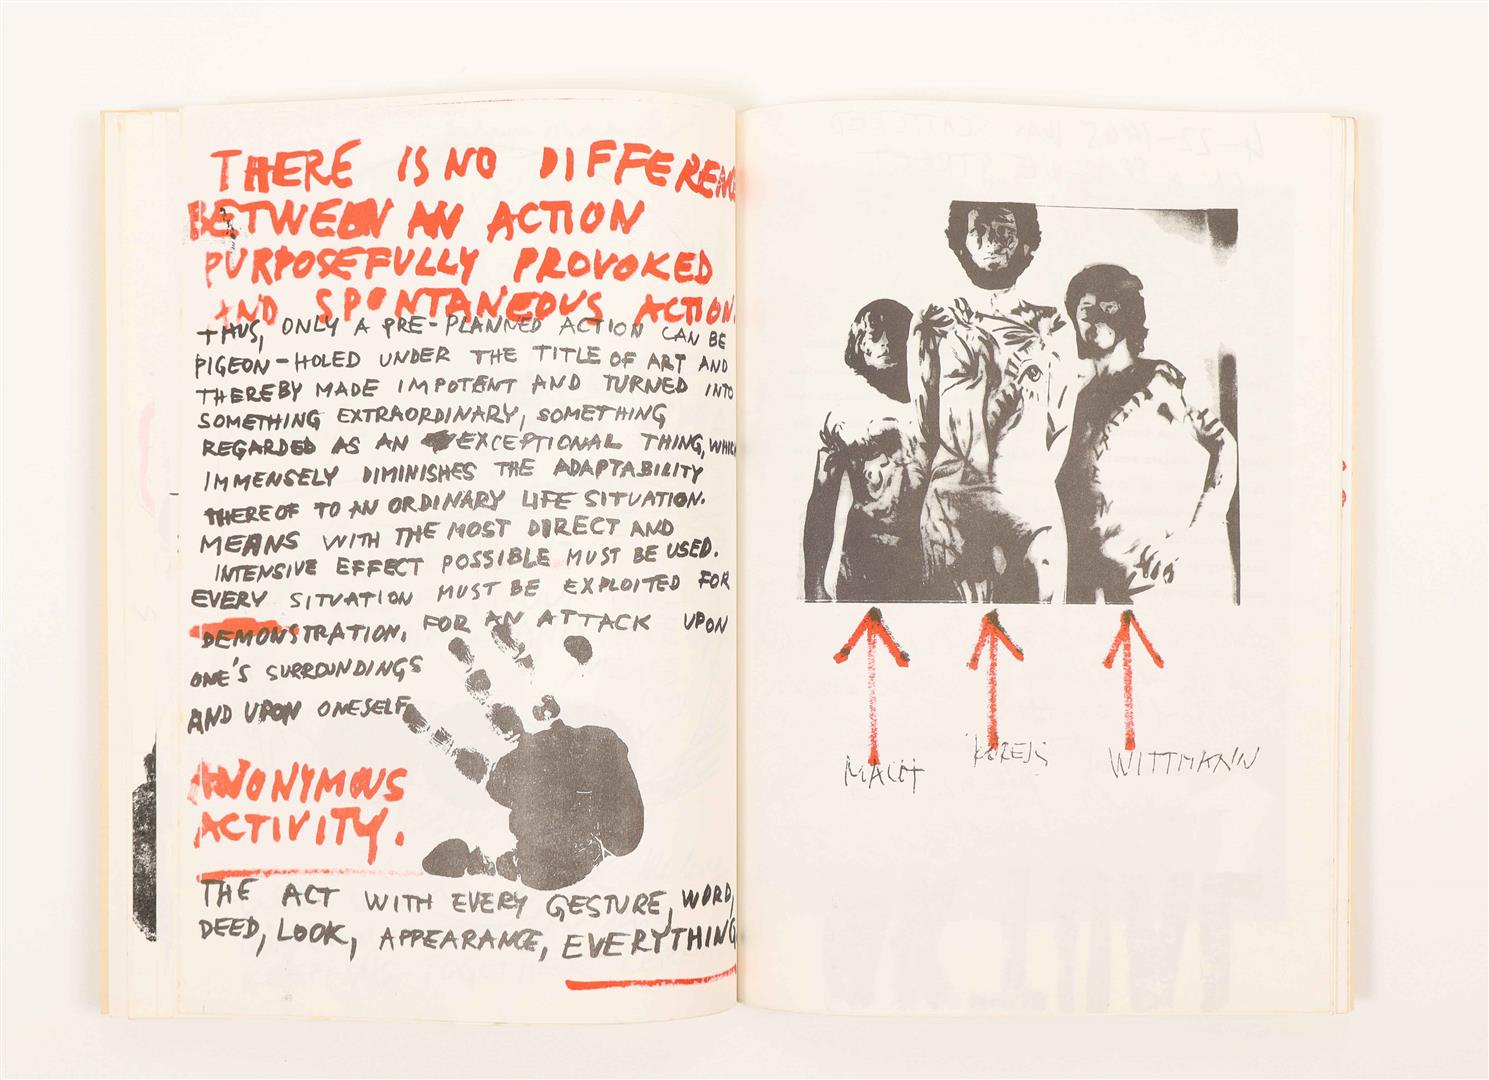 THERE IS NO DIFFERENC
BETWEEN AN ACTION
PURPOSEFULLY PROVOKED
AND SPONTANEOUS ACTION.
THUS, ONLY A PRE-PLANNED ACTION CAN BE
PIGEON-HOLED UNDER THE TITLE OF ART AND
THEREBY MADE IMPOTENT AND TURNED INTO
SOMETHING EXTRAORDINARY, SOMETHING
REGARDED AS AN EXCEPTIONAL THING, WHICH
IMMENSELY DIMINISHES THE ADAPTABILITY
THEREOF TO AN ORDINARY LIFE SITUATION.
MEANS WITH THE MOST DIRECT AND
INTENSIVE EFFECT POSSIBLE MUST BE USED.
EVERY SITUATION MUST BE EXPLOITED FOR
DEMONSTRATION, FOR AN ATTACK UPON
ONE'S SURROUNDINGS
AND UPON ONESELF
ANONYMOUS
ACTIVITY.
THE ACT WITH EVERY GESTURE, WORD,
DEED, LOOK, APPEARANCE, EVERYTHING
WITTMANN